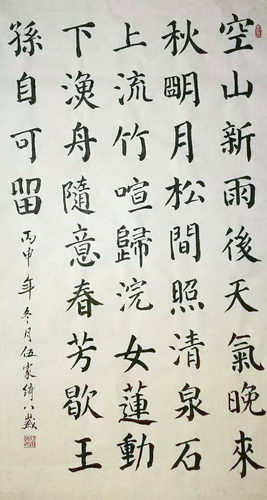 空山新雨後天氣晚來
秋眀月松間照清泉石
上流竹喧歸浣女蓮動
下漁舟隨意春芳歇王
孫自可留
丙申年冬月伍家綺八歲